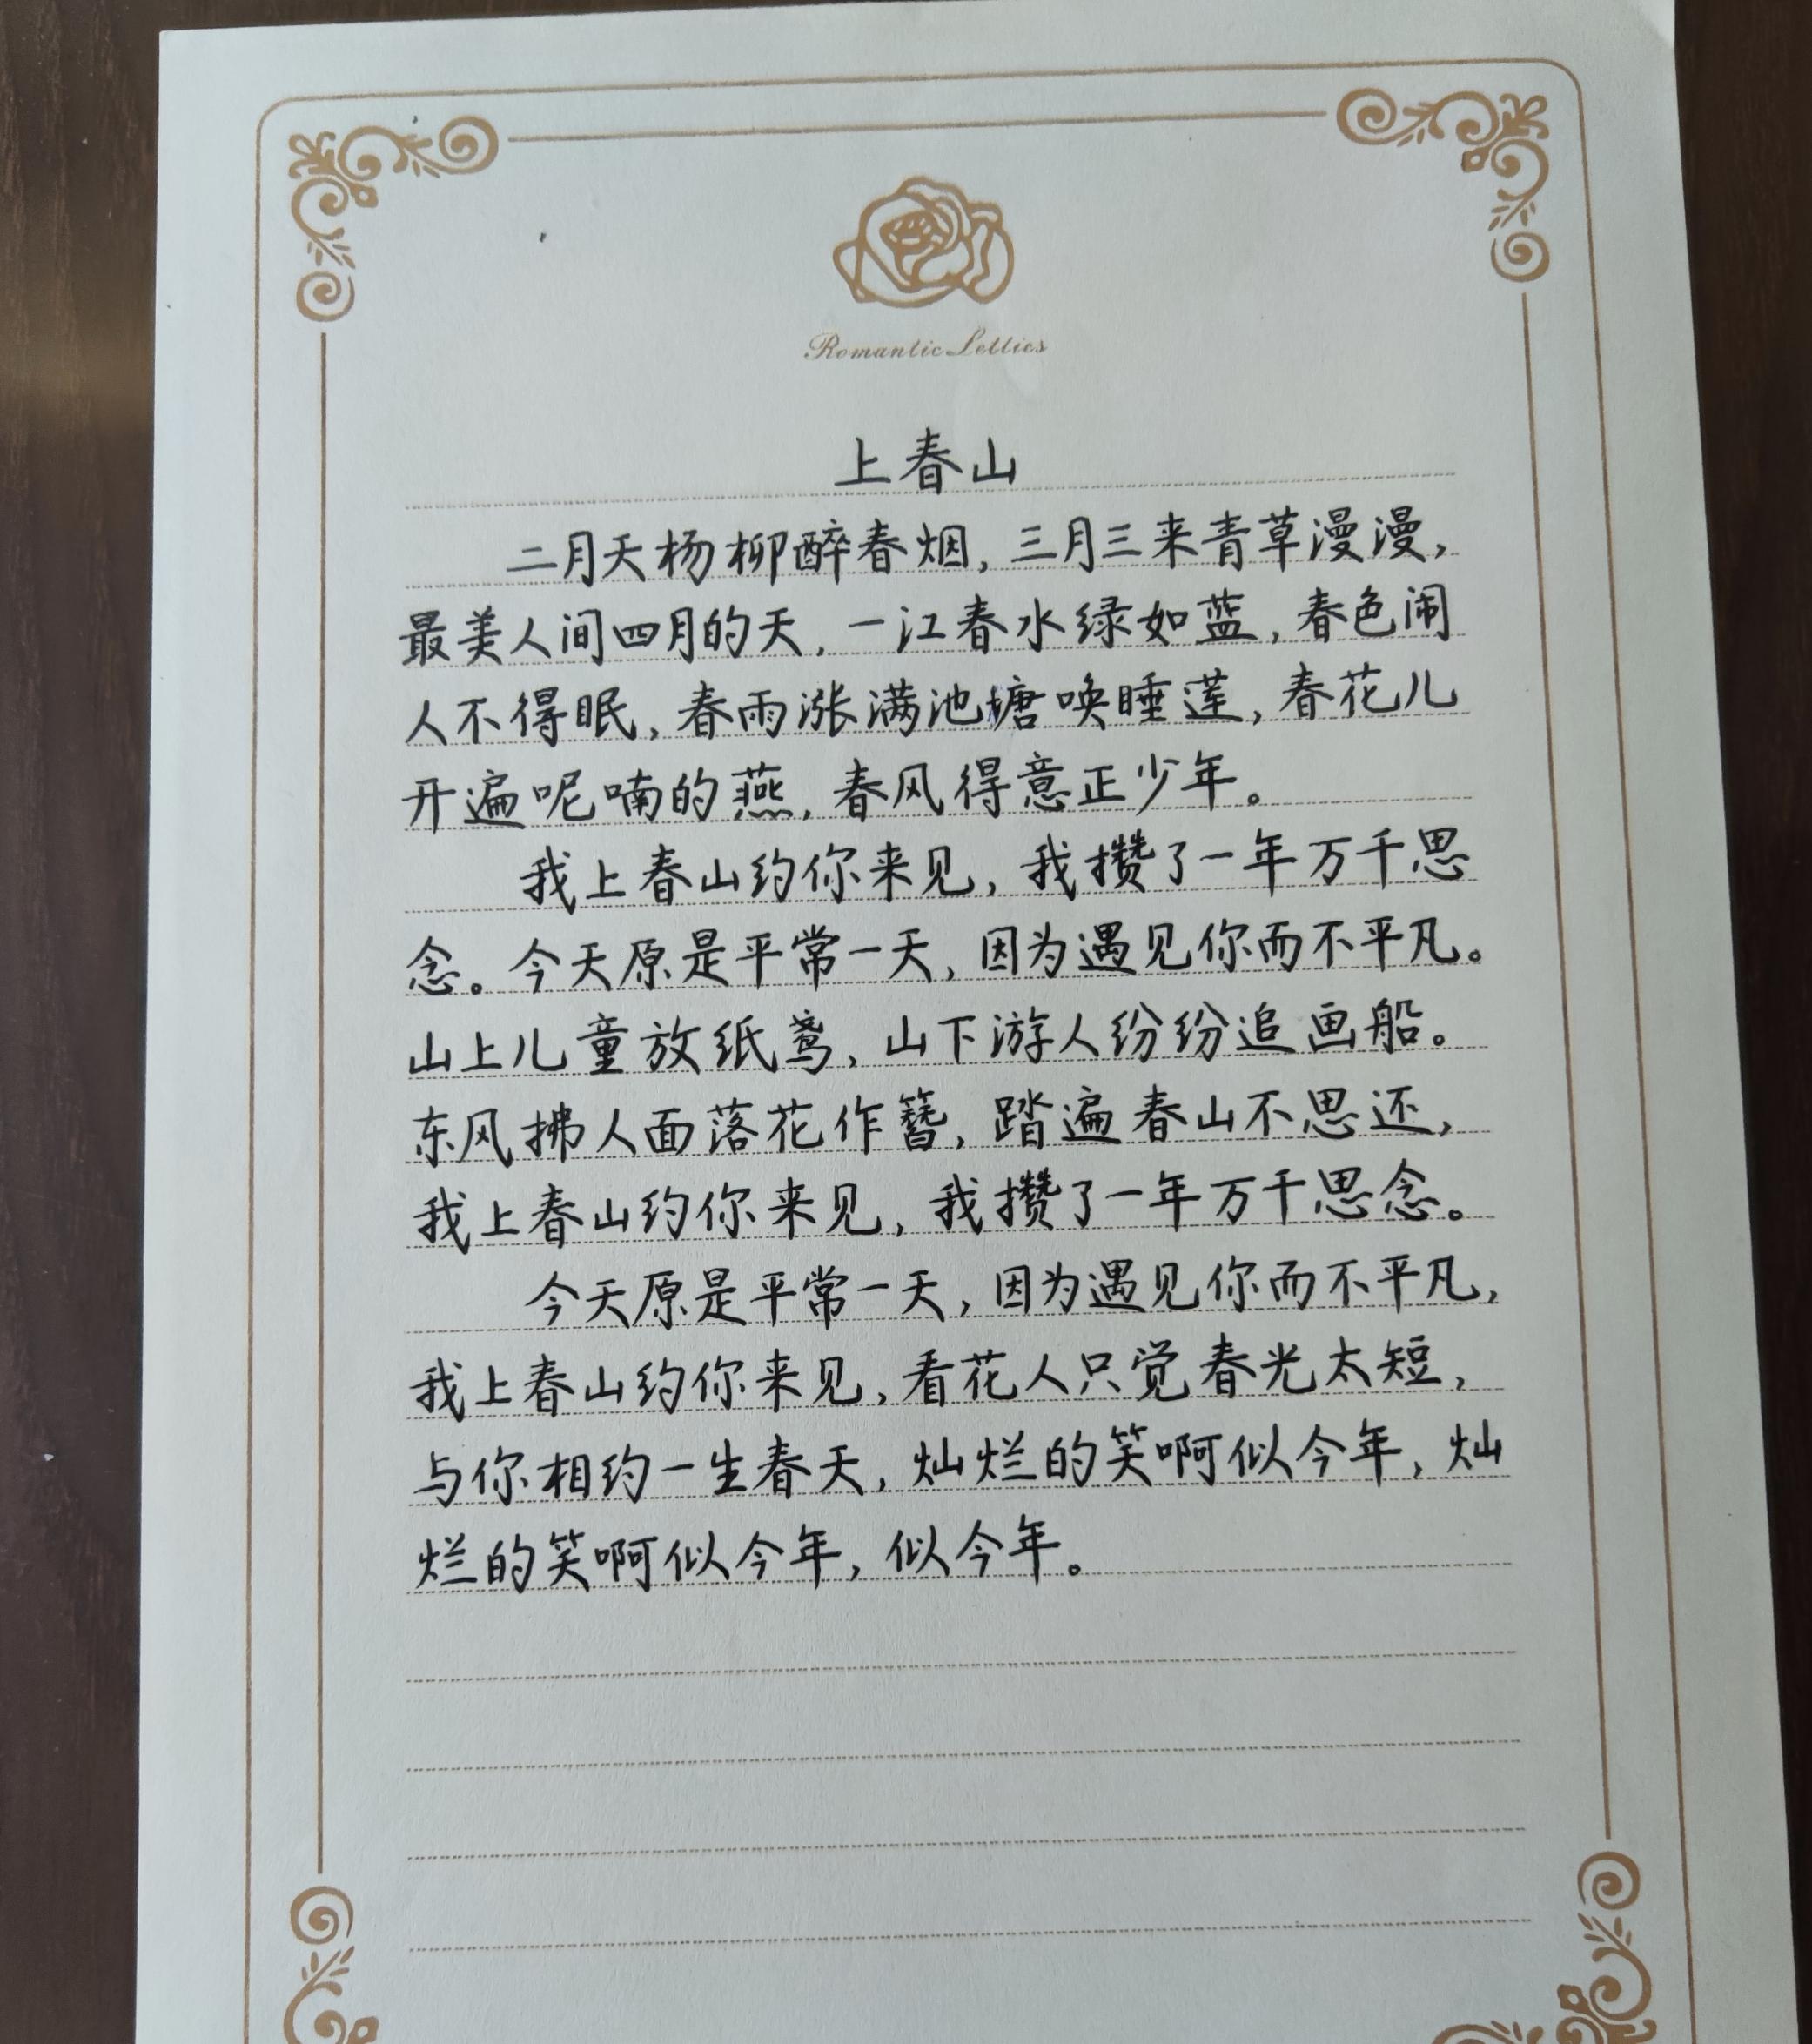 Romantic Letters
上春山
二月天杨柳醉春烟，三月三来青草漫漫，
最美人间四月的天，一江春水绿如蓝，春色闹
人不得眠，春雨涨满池塘唤睡莲，春花儿
开遍呢喃的燕，春风得意正少年。
我上春山约你来见，我攒了一年万千思
念。今天原是平常一天，因为遇见你而不平凡。
山上儿童放纸鸢，山下游人纷纷追画船。
东风拂人面落花作簪，踏遍春山不思还，
我上春山约你来见，我攒了一年万千思念。
今天原是平常一天，因为遇见你而不平凡，
我上春山约你来见，看花人只觉春光太短，
与你相约一生春天，灿烂的笑啊似今年，灿
烂的笑啊似今年，似今年。